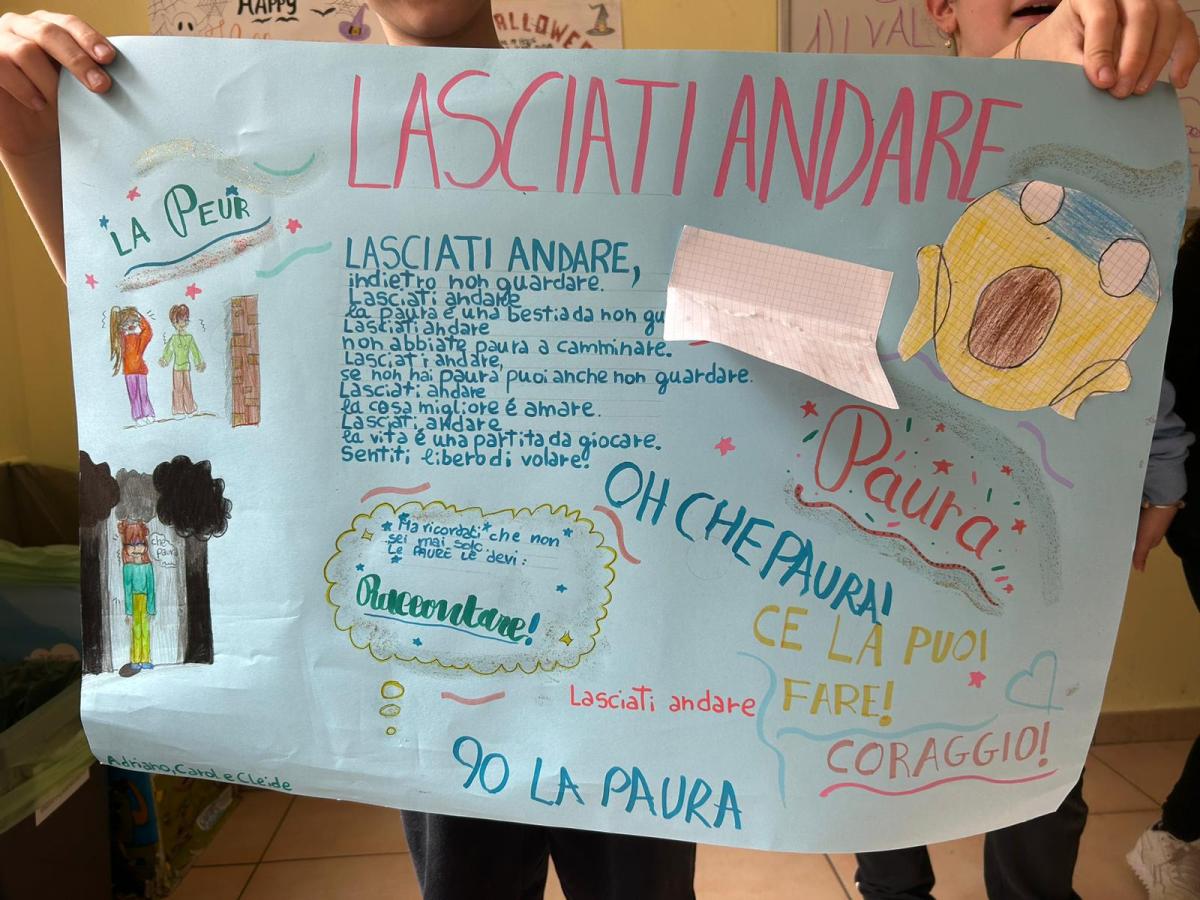 HAPPY
HALLOWEEN
LASCIATI ANDARE
LA PEUR
LASCIATI ANDARE,
indietro non guardare.
Lasciati andare
la paura é una bestia da non
Lasciati andare
non abbiate paura a camminare.
Lasciati andare,
se non hai paura puoi anche non guardare.
Lasciati andare
la cosa migliore é amare.
Lasciati andare
la vita é una partita da giocare.
Sentiti libero di volare!
Paura
OH CHE PAURA!
che
paura
Ma ricordati che non
sei mai solo.
Le PAURE LE devi:
Raccontare!
CE LA PUOI
FARE!
Lasciati andare
CORAGGIO!
90 LA PAURA
Adriano, Carol e Cleide